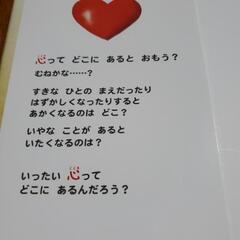 心って どこに あると おもう？
むねかな……？
すきな ひとの まえだったり
はずかしくなったりすると
あかくなるのは どこ？
いやな ことが あると
いたくなるのは？
いったい 心って
どこに あるんだろう？